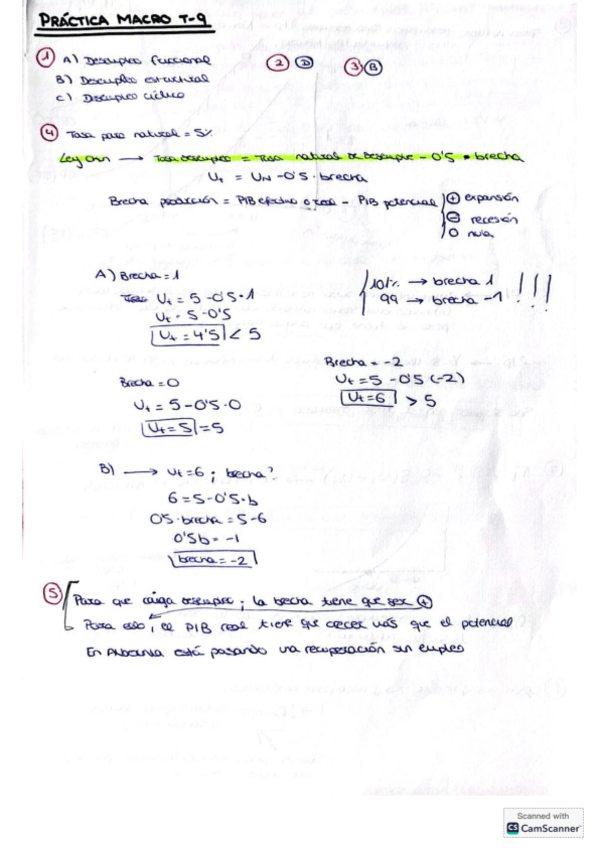 PRÁCTICA MACRO T-9
① A) Desempleo friccional ② Ⓓ ③ Ⓑ
B) Desempleo estructural
C) Desempleo cíclico
④ Tasa paro natural = 5%
Ley Okun → Tasa desempleo = Tasa natural de desempleo - 0'5 • brecha
Ut = UN - 0'5 · brecha
Brecha producción = PIB efectivo o real - PIB potencial ⊕ expansión
⊖ recesión
0 nula
A) Brecha = 1
Ut = 5 - 0'5 · 1
Ut = 5 - 0'5
Ut = 4'5 < 5
101% → brecha 1
99 → brecha -1 !!!
Brecha = 0
Ut = 5 - 0'5 · 0
Ut = 5 = 5
Brecha = -2
Ut = 5 - 0'5 (-2)
Ut = 6 > 5
B) → Ut = 6 ; brecha?
6 = 5 - 0'5 · b
0'5 · brecha = 5 - 6
0'5 b = -1
brecha = -2
⑤ Para que caiga desempleo ; la brecha tiene que ser ⊕
Para eso, el PIB real tiene que crecer más que el potencial
En está pasando una recuperación sin empleo
Scanned with
CS CamScanner